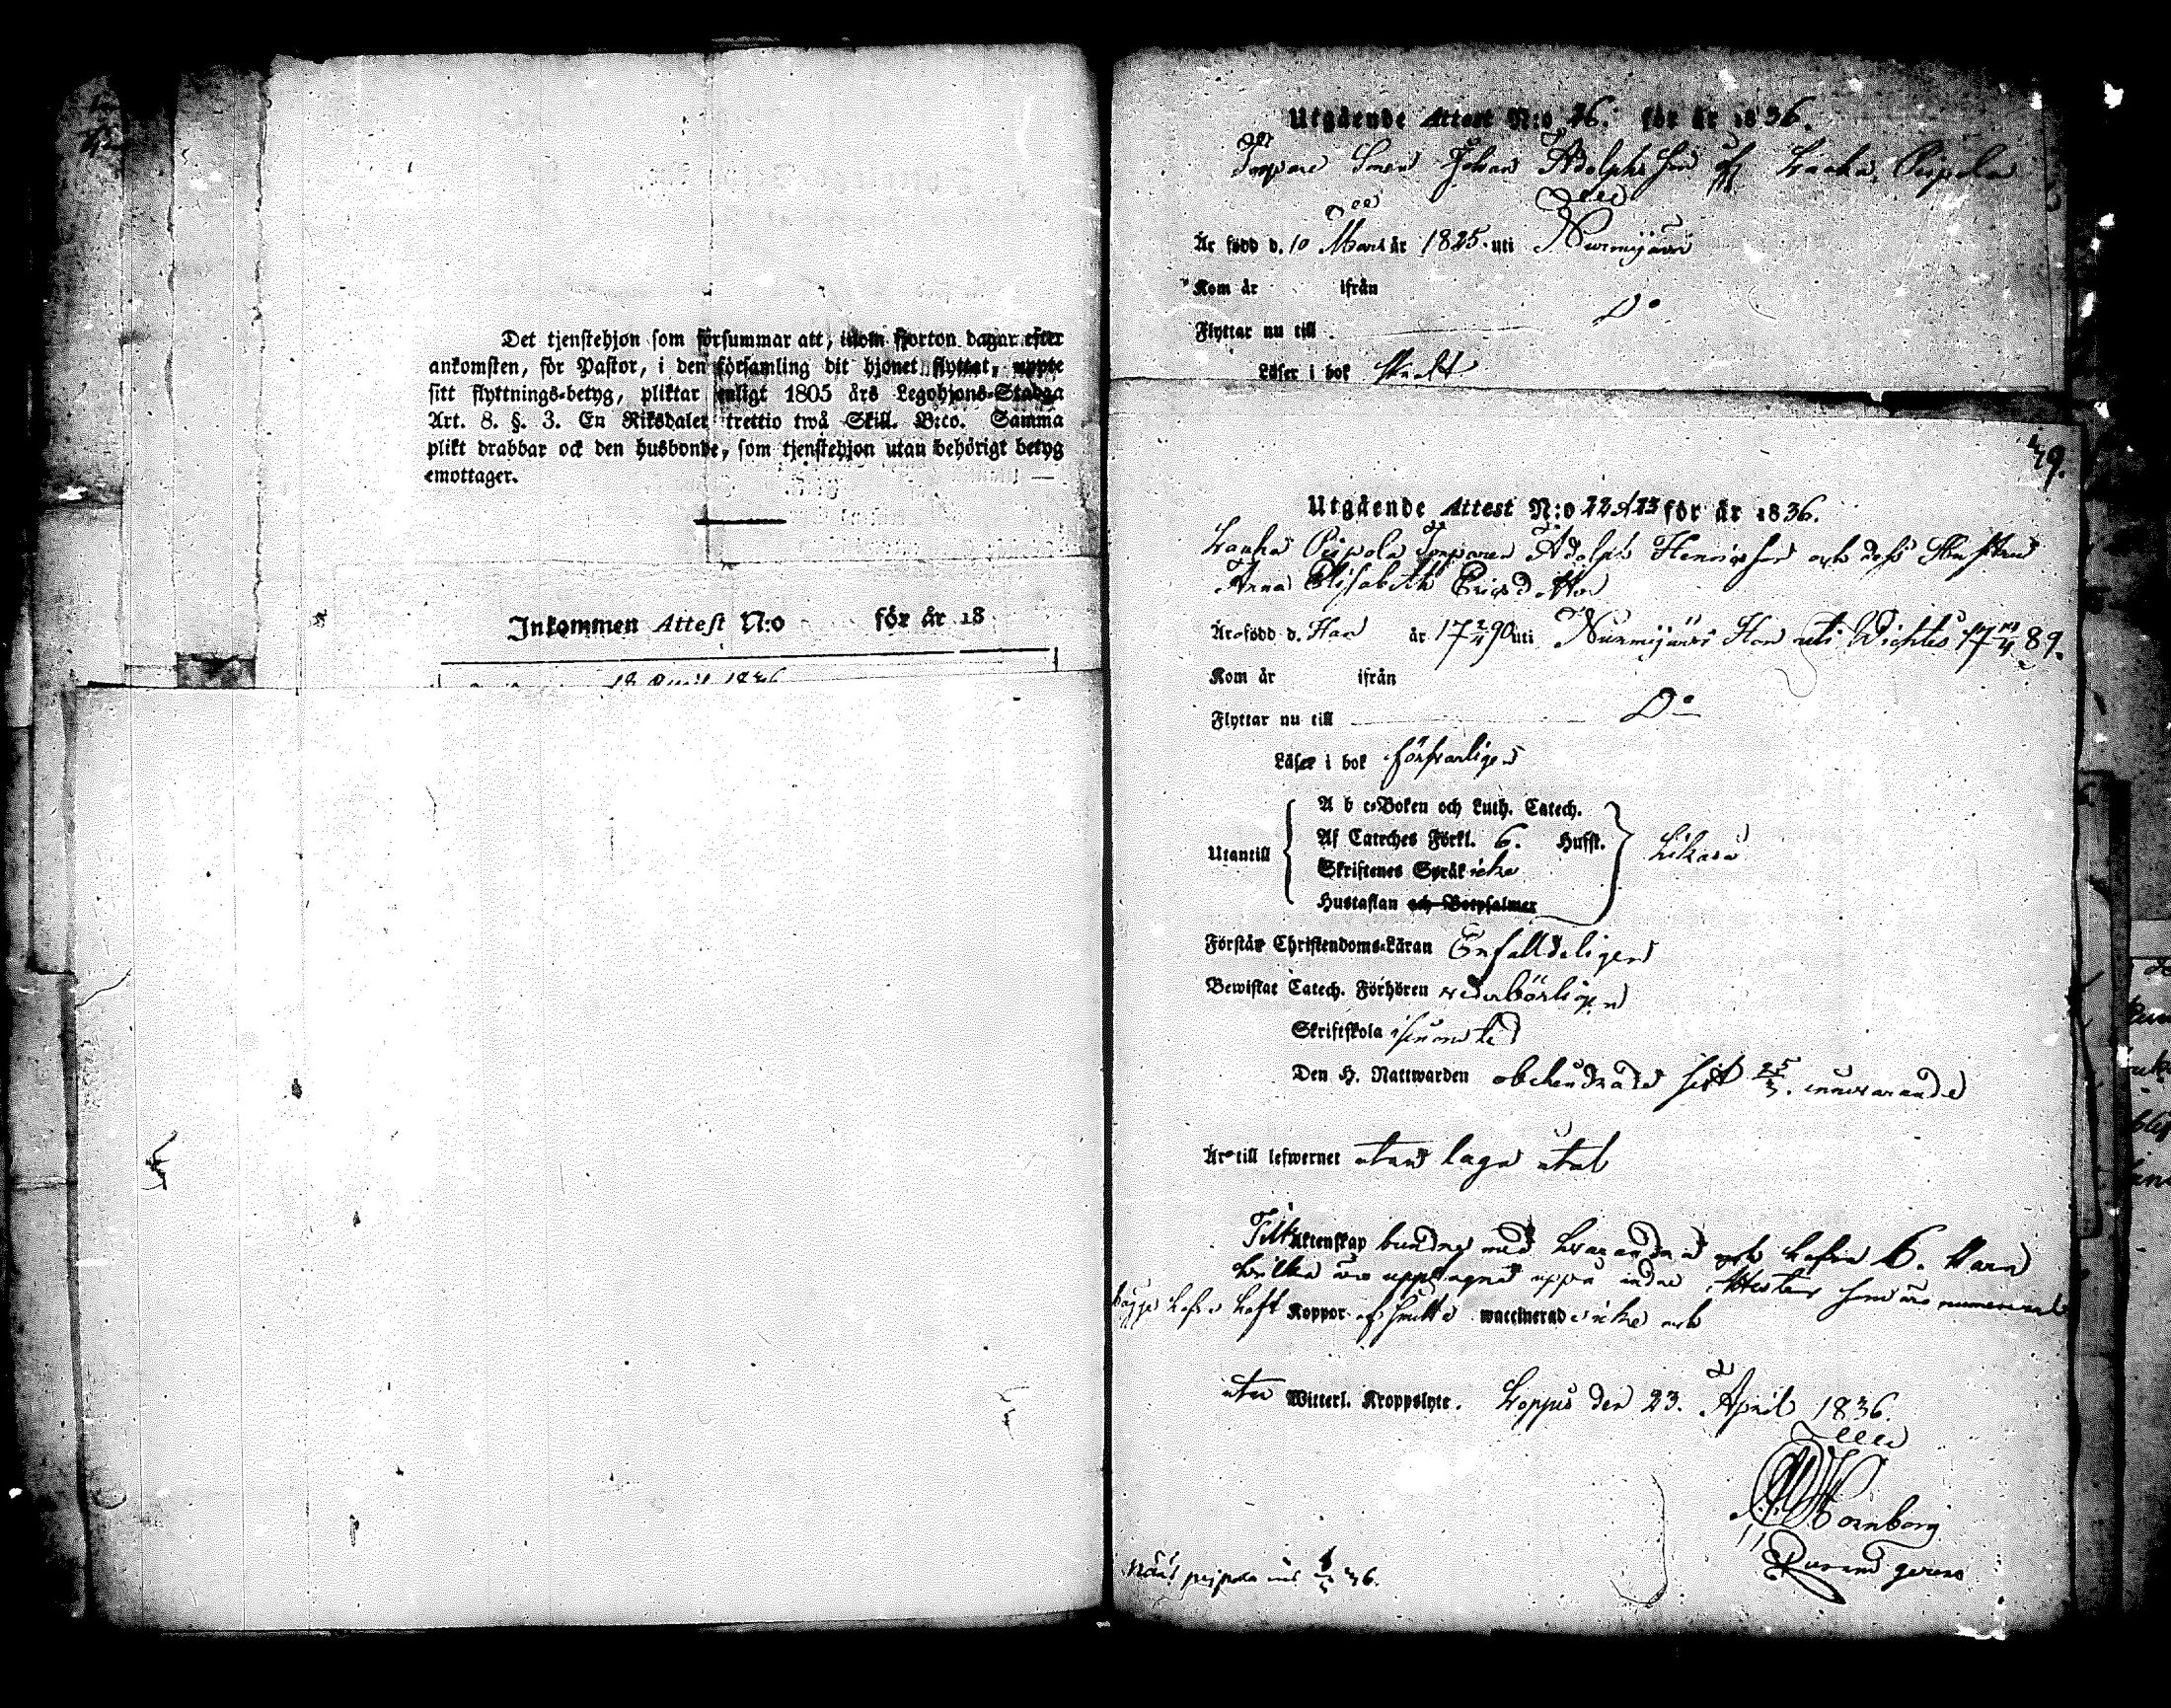 Det tjenstehjon som försummar att, inom fjorton dagar efter
ankomsten, för Pastor, i den församling dit hjonet flyttat, uppte
sitt flyttnings-betyg, pliktar enligt 1805 års Legohjons-Stadga
Art. 8. §. 3. En Riksdaler trettio twå Skill. B:co. Samma
plikt drabbar ock den husbonde, som tjenstehjon utan behörigt betyg
emottager.
Inkommen Attest N:o för år 18
18 April 1836
Utgående Attest N:o 26. för år 1836.
Johan Adolphsson Lauha Peipola
Är född d. 10 Mars år 1825 uti Nurmijärvi
Kom år ifrån
Flyttar nu till D:o
Läser i bok
49.
Utgående Attest N:o 22 & 23 för år 1836.
Lauha Peipola Torparen Adolph Henricsson och dess Hustru
Anna Elisabeth Ericsdotter
Är född d. Han år 17 2/11 90 uti Nurmijärvi Hon uti Wichtis 17 89.
Kom år ifrån
Flyttar nu till D:o
Läser i bok försvarligen
Utantill
A b c-Boken och Luth. Catech.
Af Cateches Förkl. 6. Hufst.
Skriftenes Språk icke
Hustaflan och Botpsalmer
Likaså
Förstår Christendoms-Läran Enfalldeligen
Bewistat Catech. Förhören vederbörligen
Skriftskola
Den H. Nattwarden obehindrade sist 25/3 innevarande
Är till lefwernet utan laga åtal
Till Äktenskap bundne med hvarandra och hafva 6. Barn
hvilka äro upptagna uppå andra Attester som äro numererade
bägge hafva haft Koppor waccinerade icke och
utan Witterl. Kroppslyte. Loppis den 23. April 1836.
Hornborg
Näs peipola